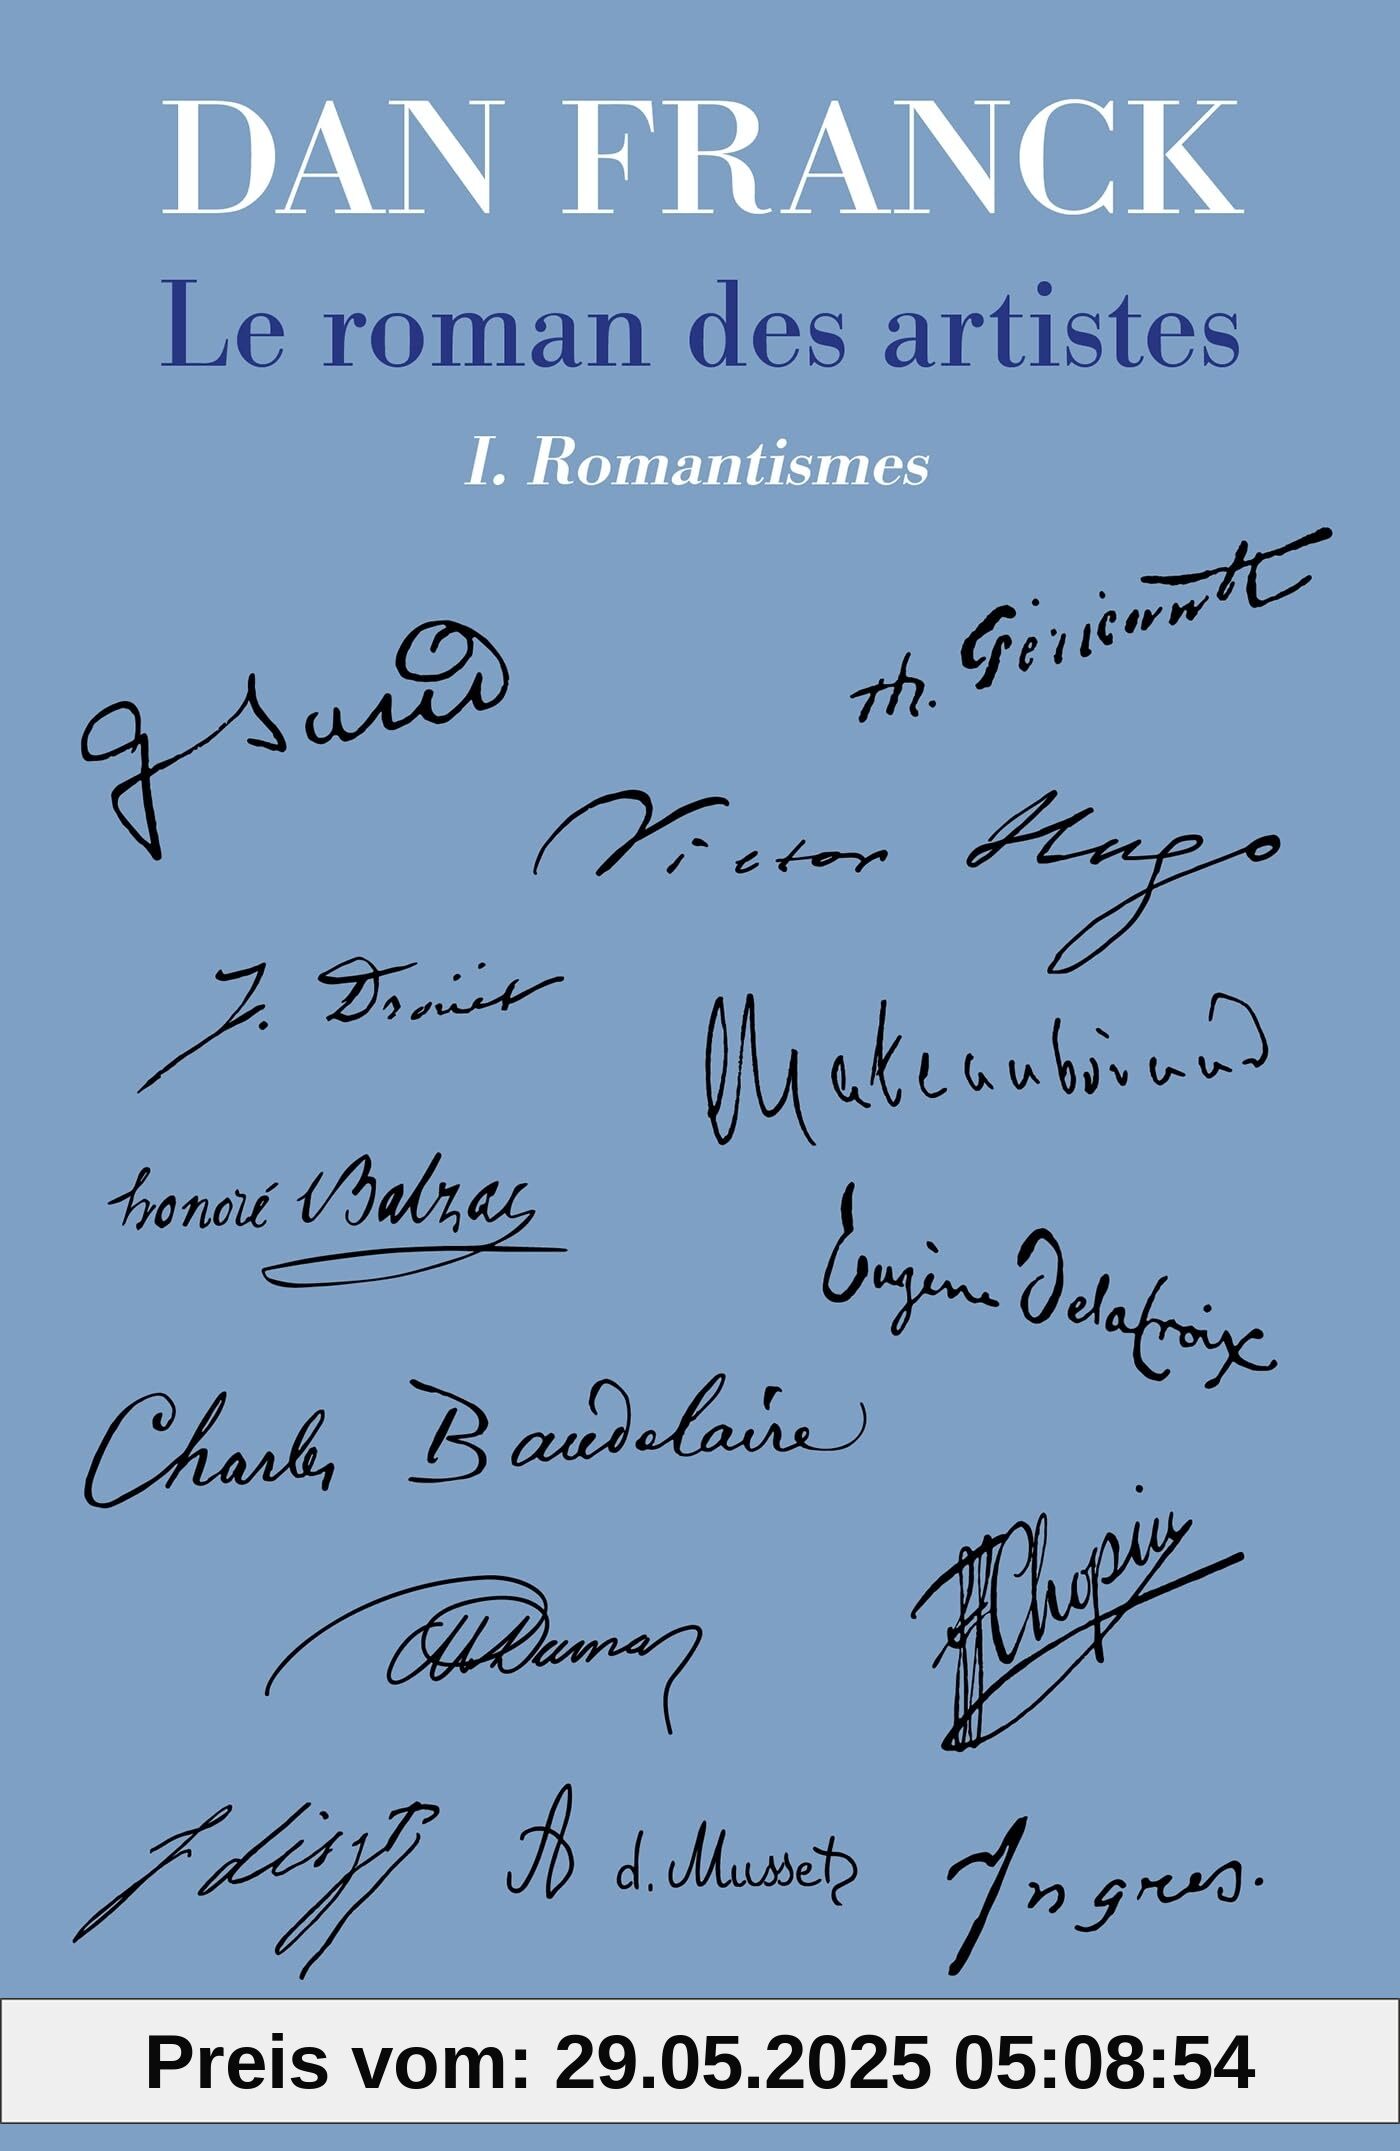 DAN FRANCK
Le roman des artistes
I. Romantismes
Th. Géricault
G Sand
Victor Hugo
J. Droüet
Chateaubriand
honoré Balzac
Eugène Delacroix
Charles Baudelaire
FChopin
Al Dumas
F Liszt
A d. Musset
Ingres.
Preis vom: 29.05.2025 05:08:54